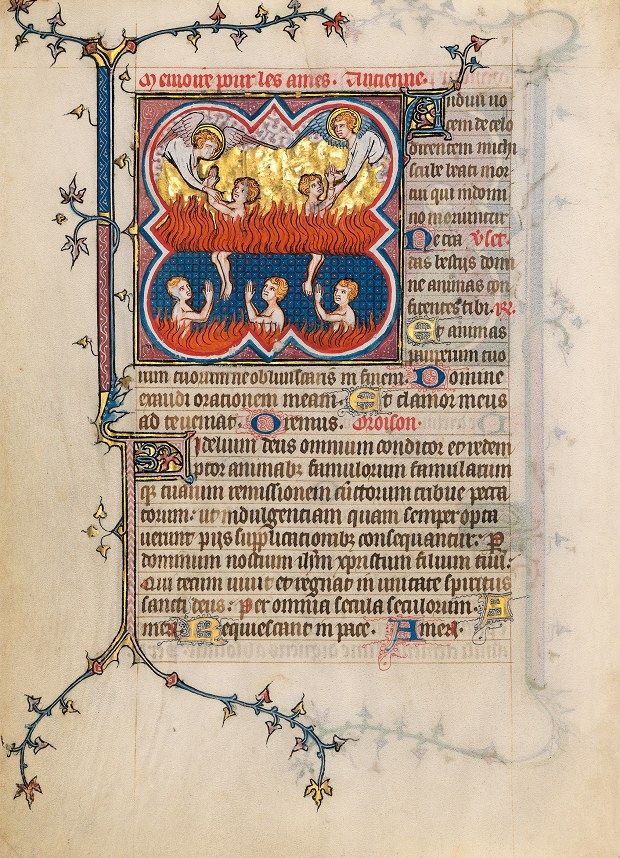 Memoire pour les ames. Antienne.
Audiui uo
cem de celo
dicentem michi
scribe beati mor
tui qui in domi
no moriuntur
Ne tra Vset.
das bestiis domi
ne animas con
fitentes tibi. R.
Et animas
pauperum tuo
rum tuorum ne obliuiscaris in finem. Domine
exaudi orationem meam. Et clamor meus
ad te ueniat. Oremus. Oroison.
Fidelium deus omnium conditor et redem
ptor animabz famulorum famularum
qz tuarum remissionem cūctorum tribue pecca
torum: ut indulgentiam quam semper opta
uerunt pijs supplicationibz consequantur. P
dominum nostrum ihm xpristum filium tuū.
Qui tecum uiuit et regnat in unitate spiritus
sancti deus: Per omnia secula seculorum. A
men. Requiescant in pace. Amen.